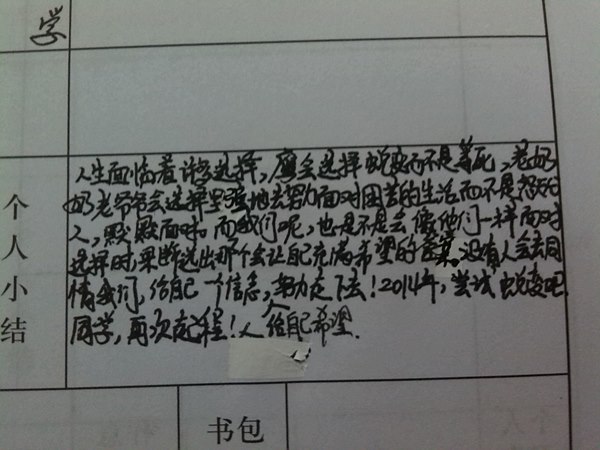 学
人生面临着许多选择，鹰会选择蜕变而不是等死，老奶
奶老爷爷会选择坚强地去努力面对困苦的生活而不是怨天
人，默默面对。而我们呢，也是不是会像他们一样面对
选择时，果断选出那个会让自己充满希望的答案。没有人会去同
情我们，给自己一个信念，努力走下去！2014年，尝试蜕变吧
同学，再次起程！人 给自己希望.
个人小结
书包